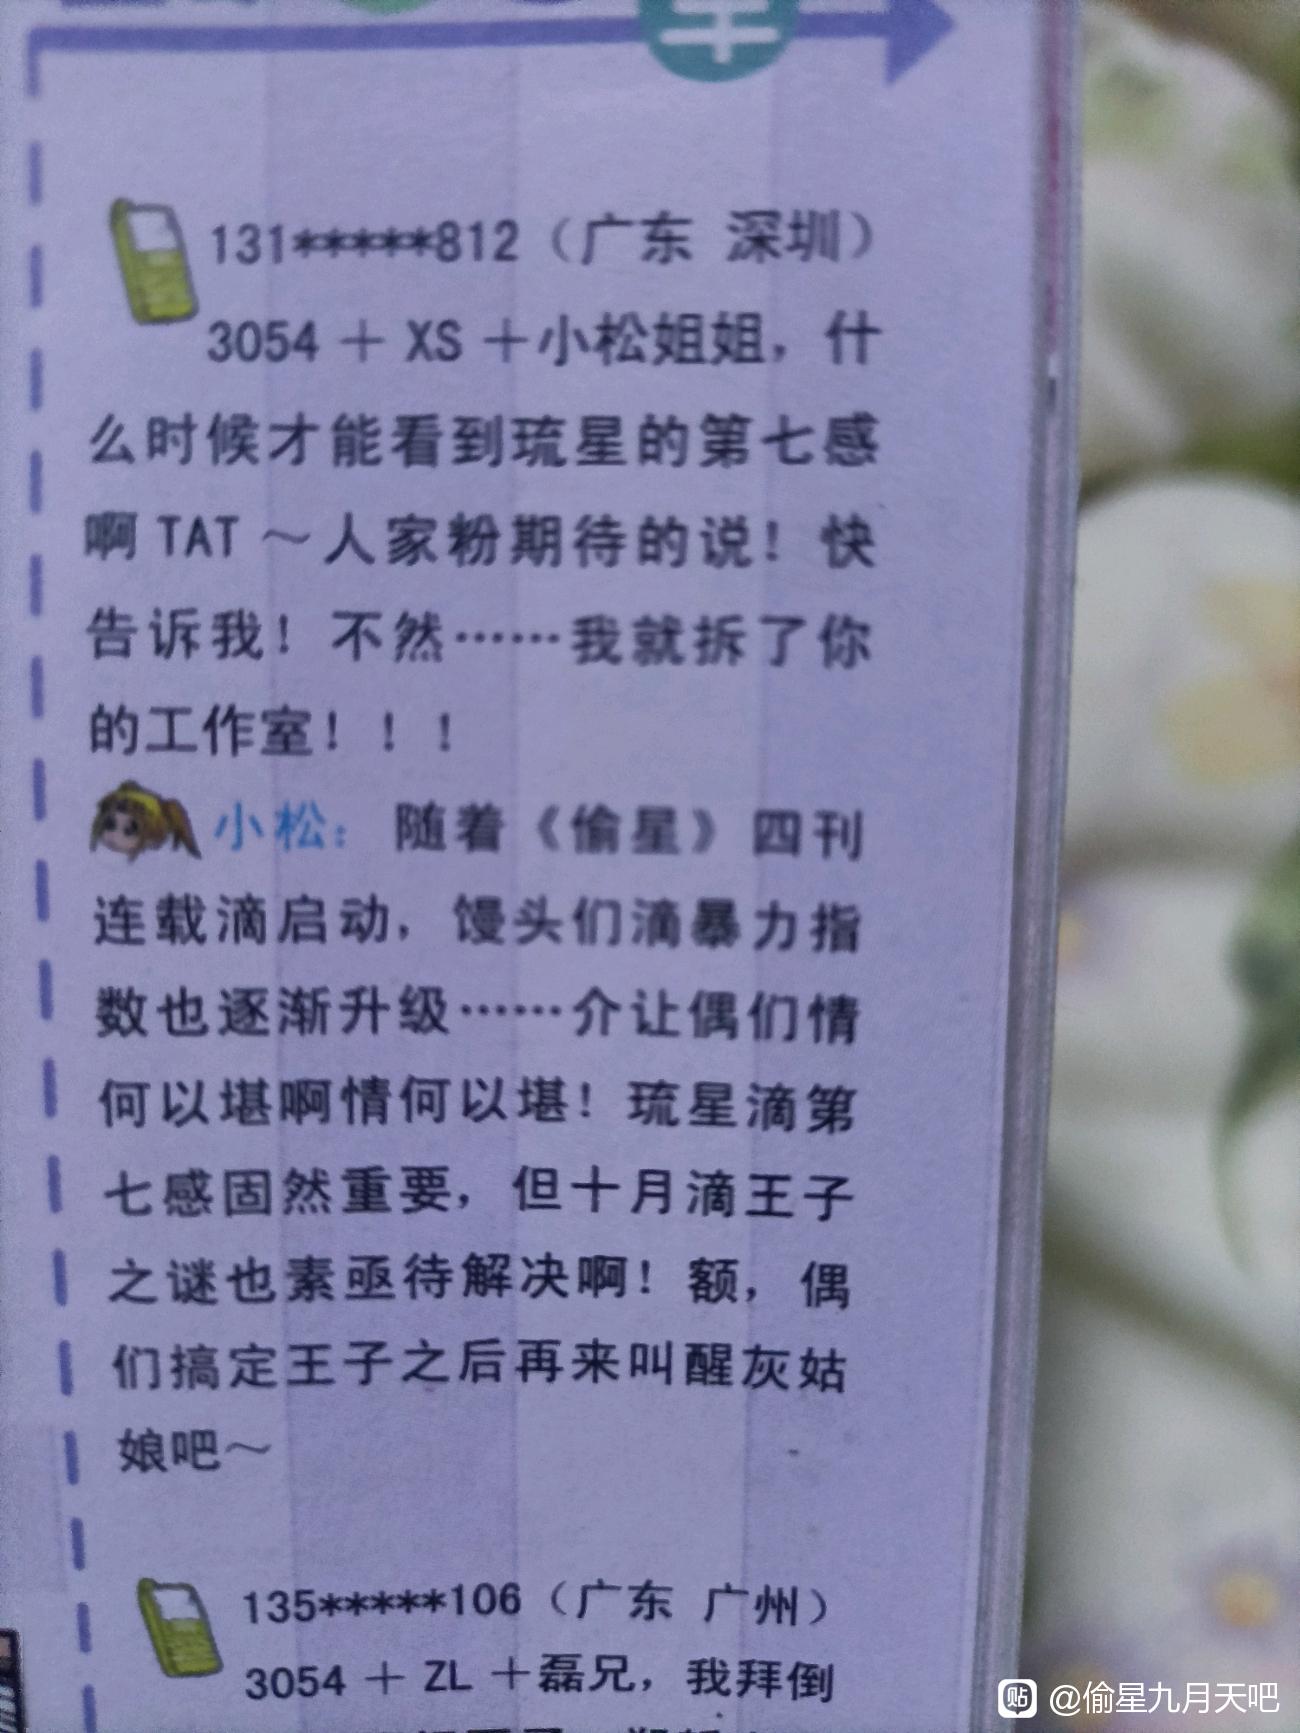 131*****812（广东 深圳）
3054 ＋ XS ＋小松姐姐，什
么时候才能看到琉星的第七感
啊 TAT ～人家粉期待的说！快
告诉我！不然……我就拆了你
的工作室！！！
小松：随着《偷星》四刊
连载滴启动，馒头们滴暴力指
数也逐渐升级……介让偶们情
何以堪啊情何以堪！琉星滴第
七感固然重要，但十月滴王子
之谜也素亟待解决啊！额，偶
们搞定王子之后再来叫醒灰姑
娘吧～
135*****106（广东 广州）
3054 ＋ ZL ＋磊兄，我拜倒
贴 @偷星九月天吧